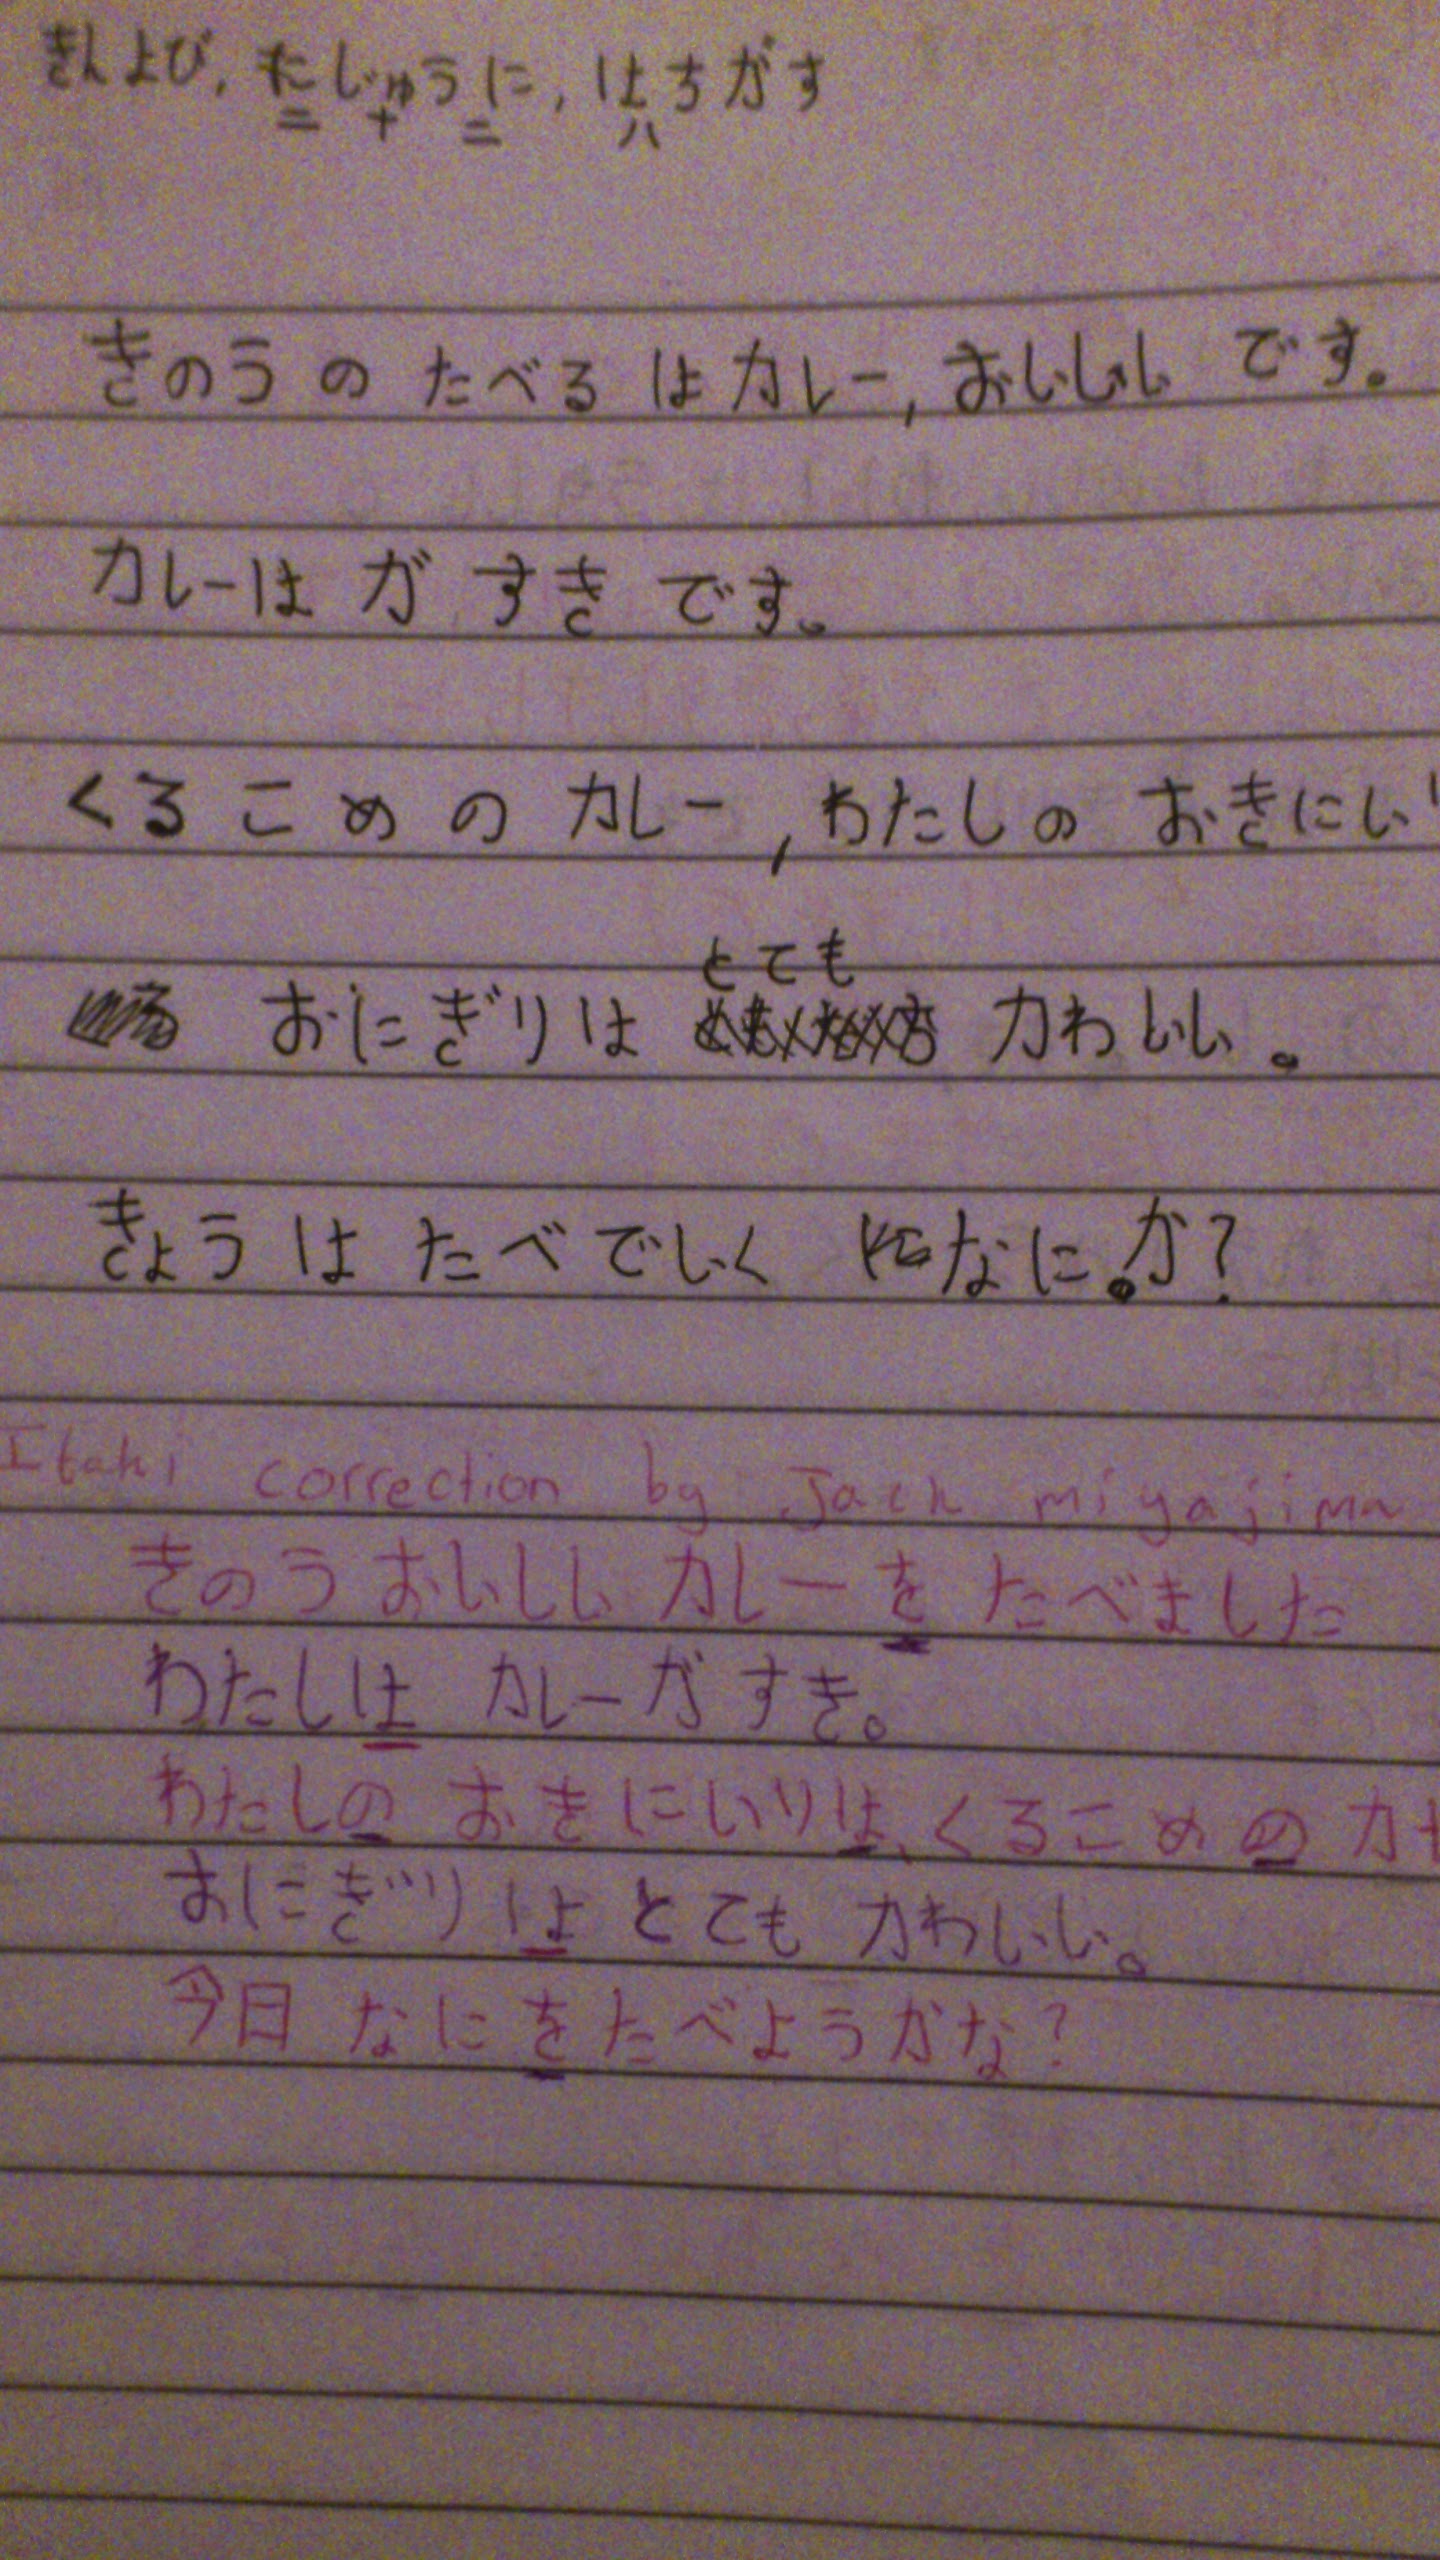 きんよび, にじゅうに, はちがす
二 十 二 八
きのう の たべる は カレー, おいしい です。
カレーは が すき です。
くる こめ の カレー, わたしの おきにい
とても
おにぎりは カわいい。
きょう は たべでしく なに。か?
Italki correction by Jack miyajima
きのう おいしい カレーを たべました
わたしは カレーが すき。
わたしの おきにいりは、くるこめの カ
おにぎりは とても カわいい。
今日 なにをたべようかな?